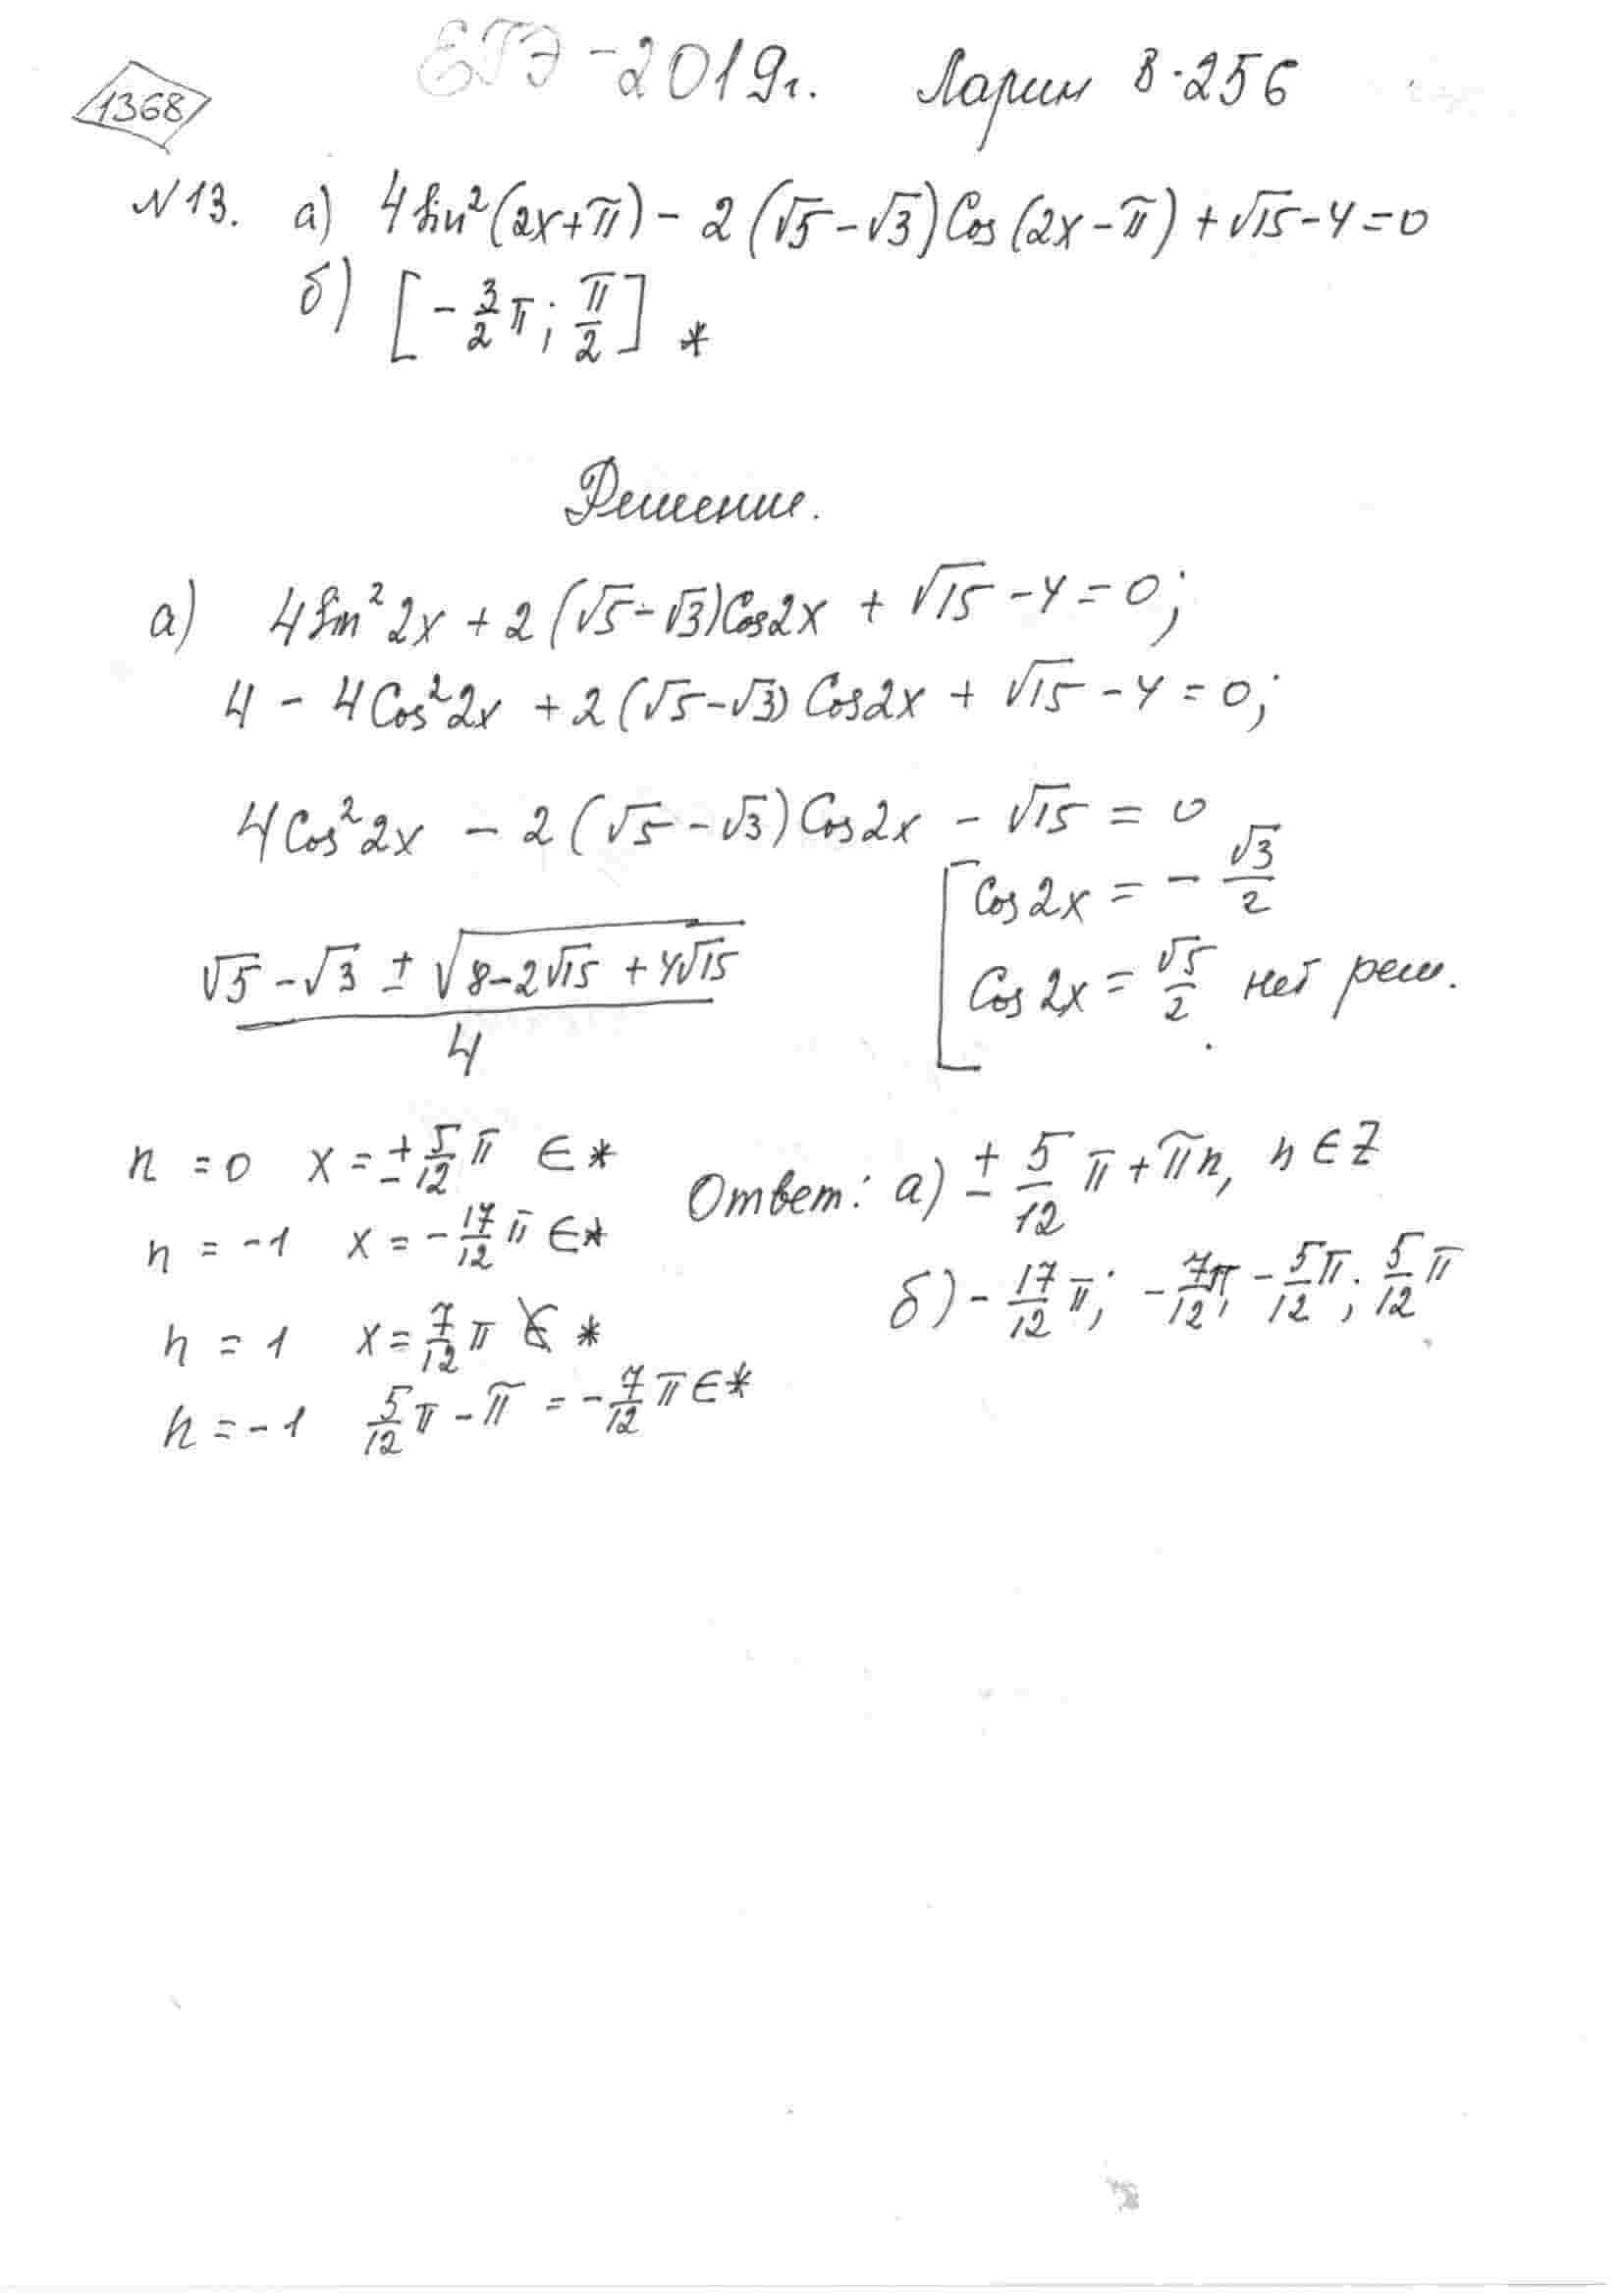 1368
ЕГЭ-2019г. Ларин В-256
№13. а) 4 Sin²(2x+π) - 2(√5-√3)Cos(2x-π)+√15-4=0
б) [-3/2π; π/2] *
Решение.
а) 4 Sin²2x + 2(√5-√3)Cos2x + √15-4=0;
4 - 4Cos²2x + 2(√5-√3) Cos2x + √15-4=0;
4Cos²2x - 2(√5-√3)Cos2x - √15 = 0
(√5-√3 ± √(8-2√15+4√15))/4
[ Cos2x = -√3/2
Cos2x = √5/2 нет реш.
n=0 x=±5/12π ∈ *
n=-1 x=-17/12π ∈ *
n=1 x=7/12π ∉ *
n=-1 5/12π-π = -7/12π ∈ *
Ответ: а) ±5/12π+πn, n∈Z
б) -17/12π; -7/12π, -5/12π; 5/12π